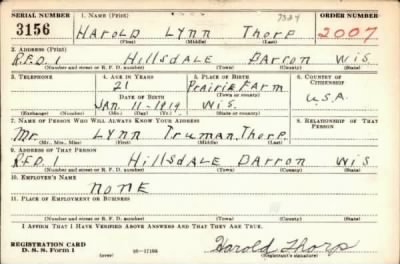 SERIAL NUMBER 1. NAME (Print) 7324 ORDER NUMBER
3156 HAROLD LYNN Thorp 2007
(First) (Middle) (Last)
2. ADDRESS (Print)
R.F.D. 1 Hillsdale Barron Wis.
(Number and street or R. F. D. number) (Town) (County) (State)
3. TELEPHONE 4. AGE IN YEARS 5. PLACE OF BIRTH 6. COUNTRY OF CITIZENSHIP
21 Prairie Farm
DATE OF BIRTH (Town or county) U.S.A.
Jan. 11-1919 Wis.
(Exchange) (Number) (Mo.) (Day) (Yr.) (State or country)
7. NAME OF PERSON WHO WILL ALWAYS KNOW YOUR ADDRESS 8. RELATIONSHIP OF THAT PERSON
Mr. LYNN Truman Thorp
(Mr., Mrs., Miss) (First) (Middle) (Last)
9. ADDRESS OF THAT PERSON
R.F.D. 1 HillsDALE BArron Wis
(Number and street or R. F. D. number) (Town) (County) (State)
10. EMPLOYER'S NAME
NONE
11. PLACE OF EMPLOYMENT OR BUSINESS
(Number and street or R. F. D. number) (Town) (County) (State)
I AFFIRM THAT I HAVE VERIFIED ABOVE ANSWERS AND THAT THEY ARE TRUE.
REGISTRATION CARD
D. S. S. Form 1 (over) 16-17105 Harold Thorp
(Registrant's signature)